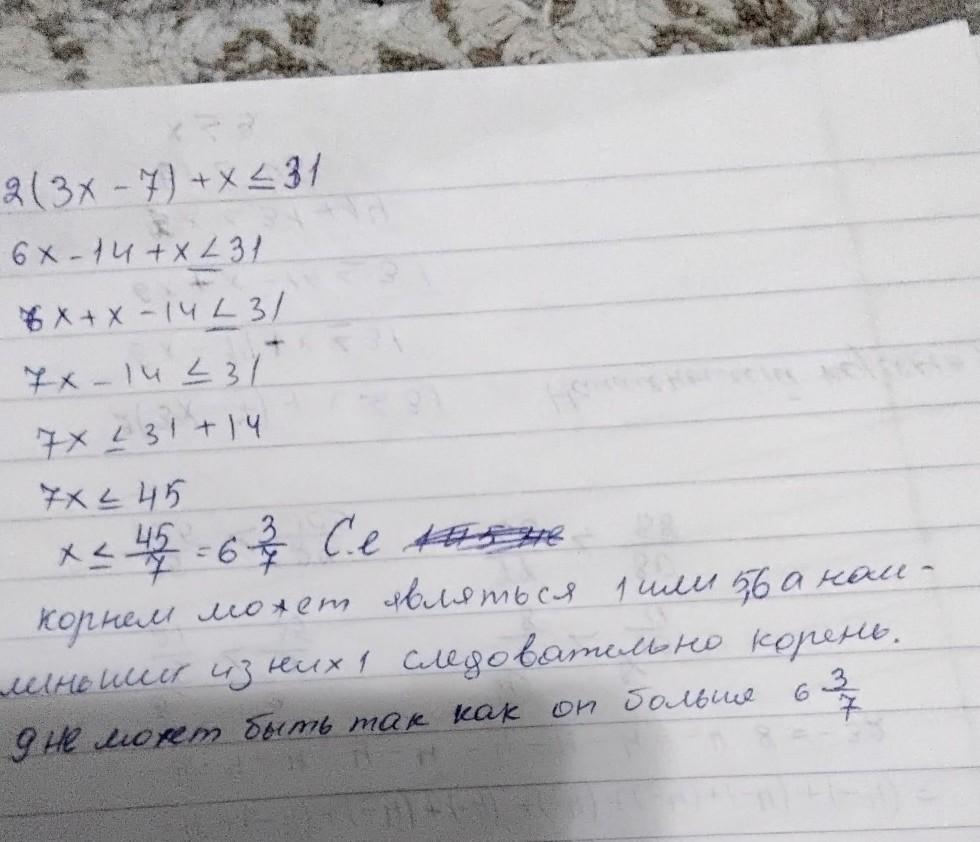 2(3x - 7) + x ≤ 31
6x - 14 + x ≤ 31
6x + x - 14 ≤ 31
7x - 14 ≤ 31
7x ≤ 31 + 14
7x ≤ 45
x ≤ 45/7 = 6 3/7 С.е
корнем может являться 1 или 5,6 а наи-
меньший из них 1 следовательно корень.
9 не может быть так как он больше 6 3/7